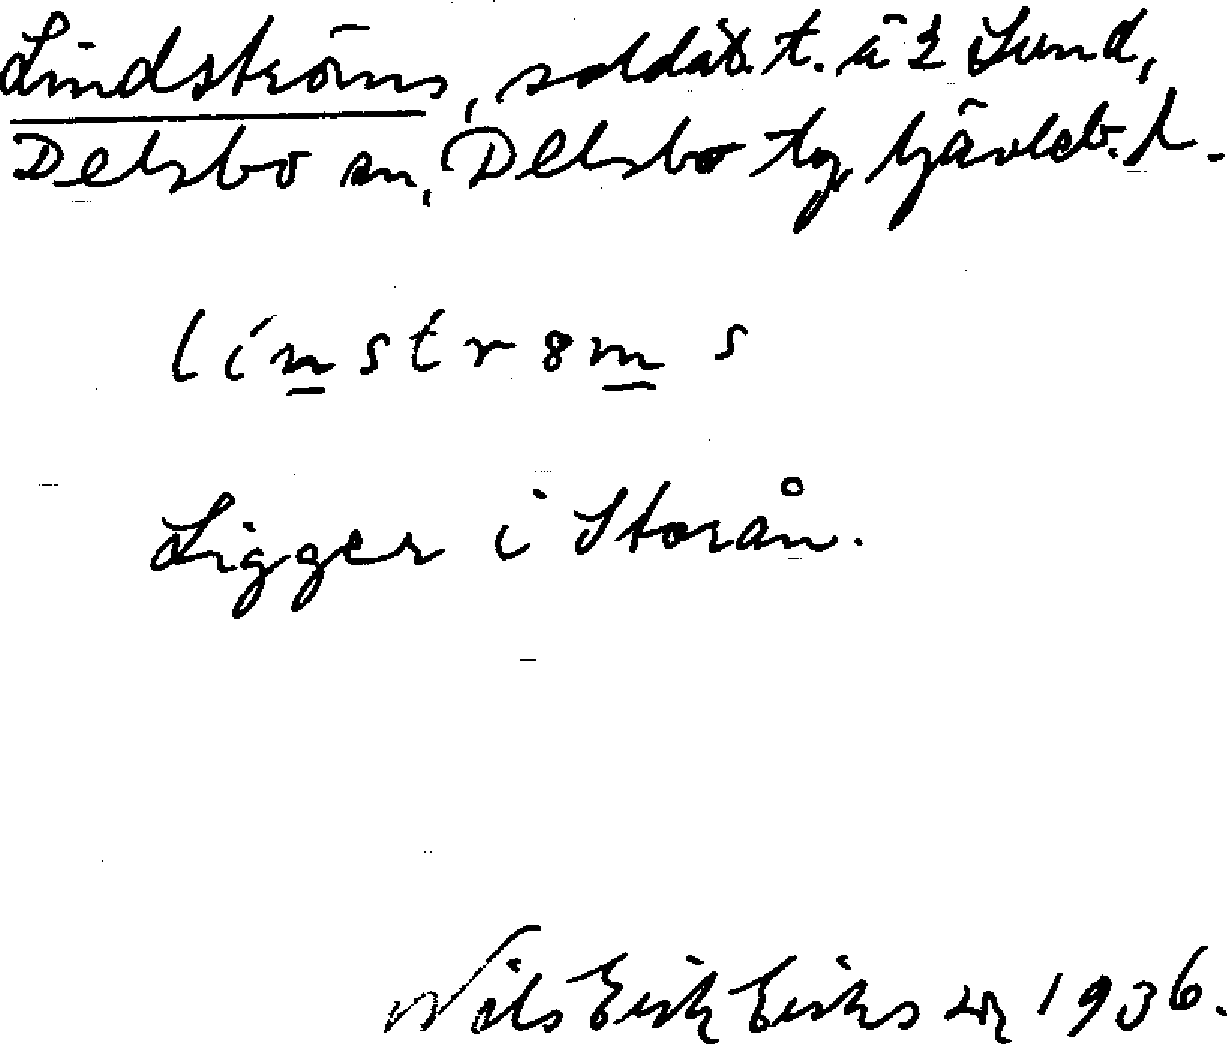 Lindströms, soldat.t. å 2 Sund,
Delsbo sn, Delsbo tg, Gävleb. l.
linstrøm s
Ligger i Storån.
Nils Erik Eriksson 1936.